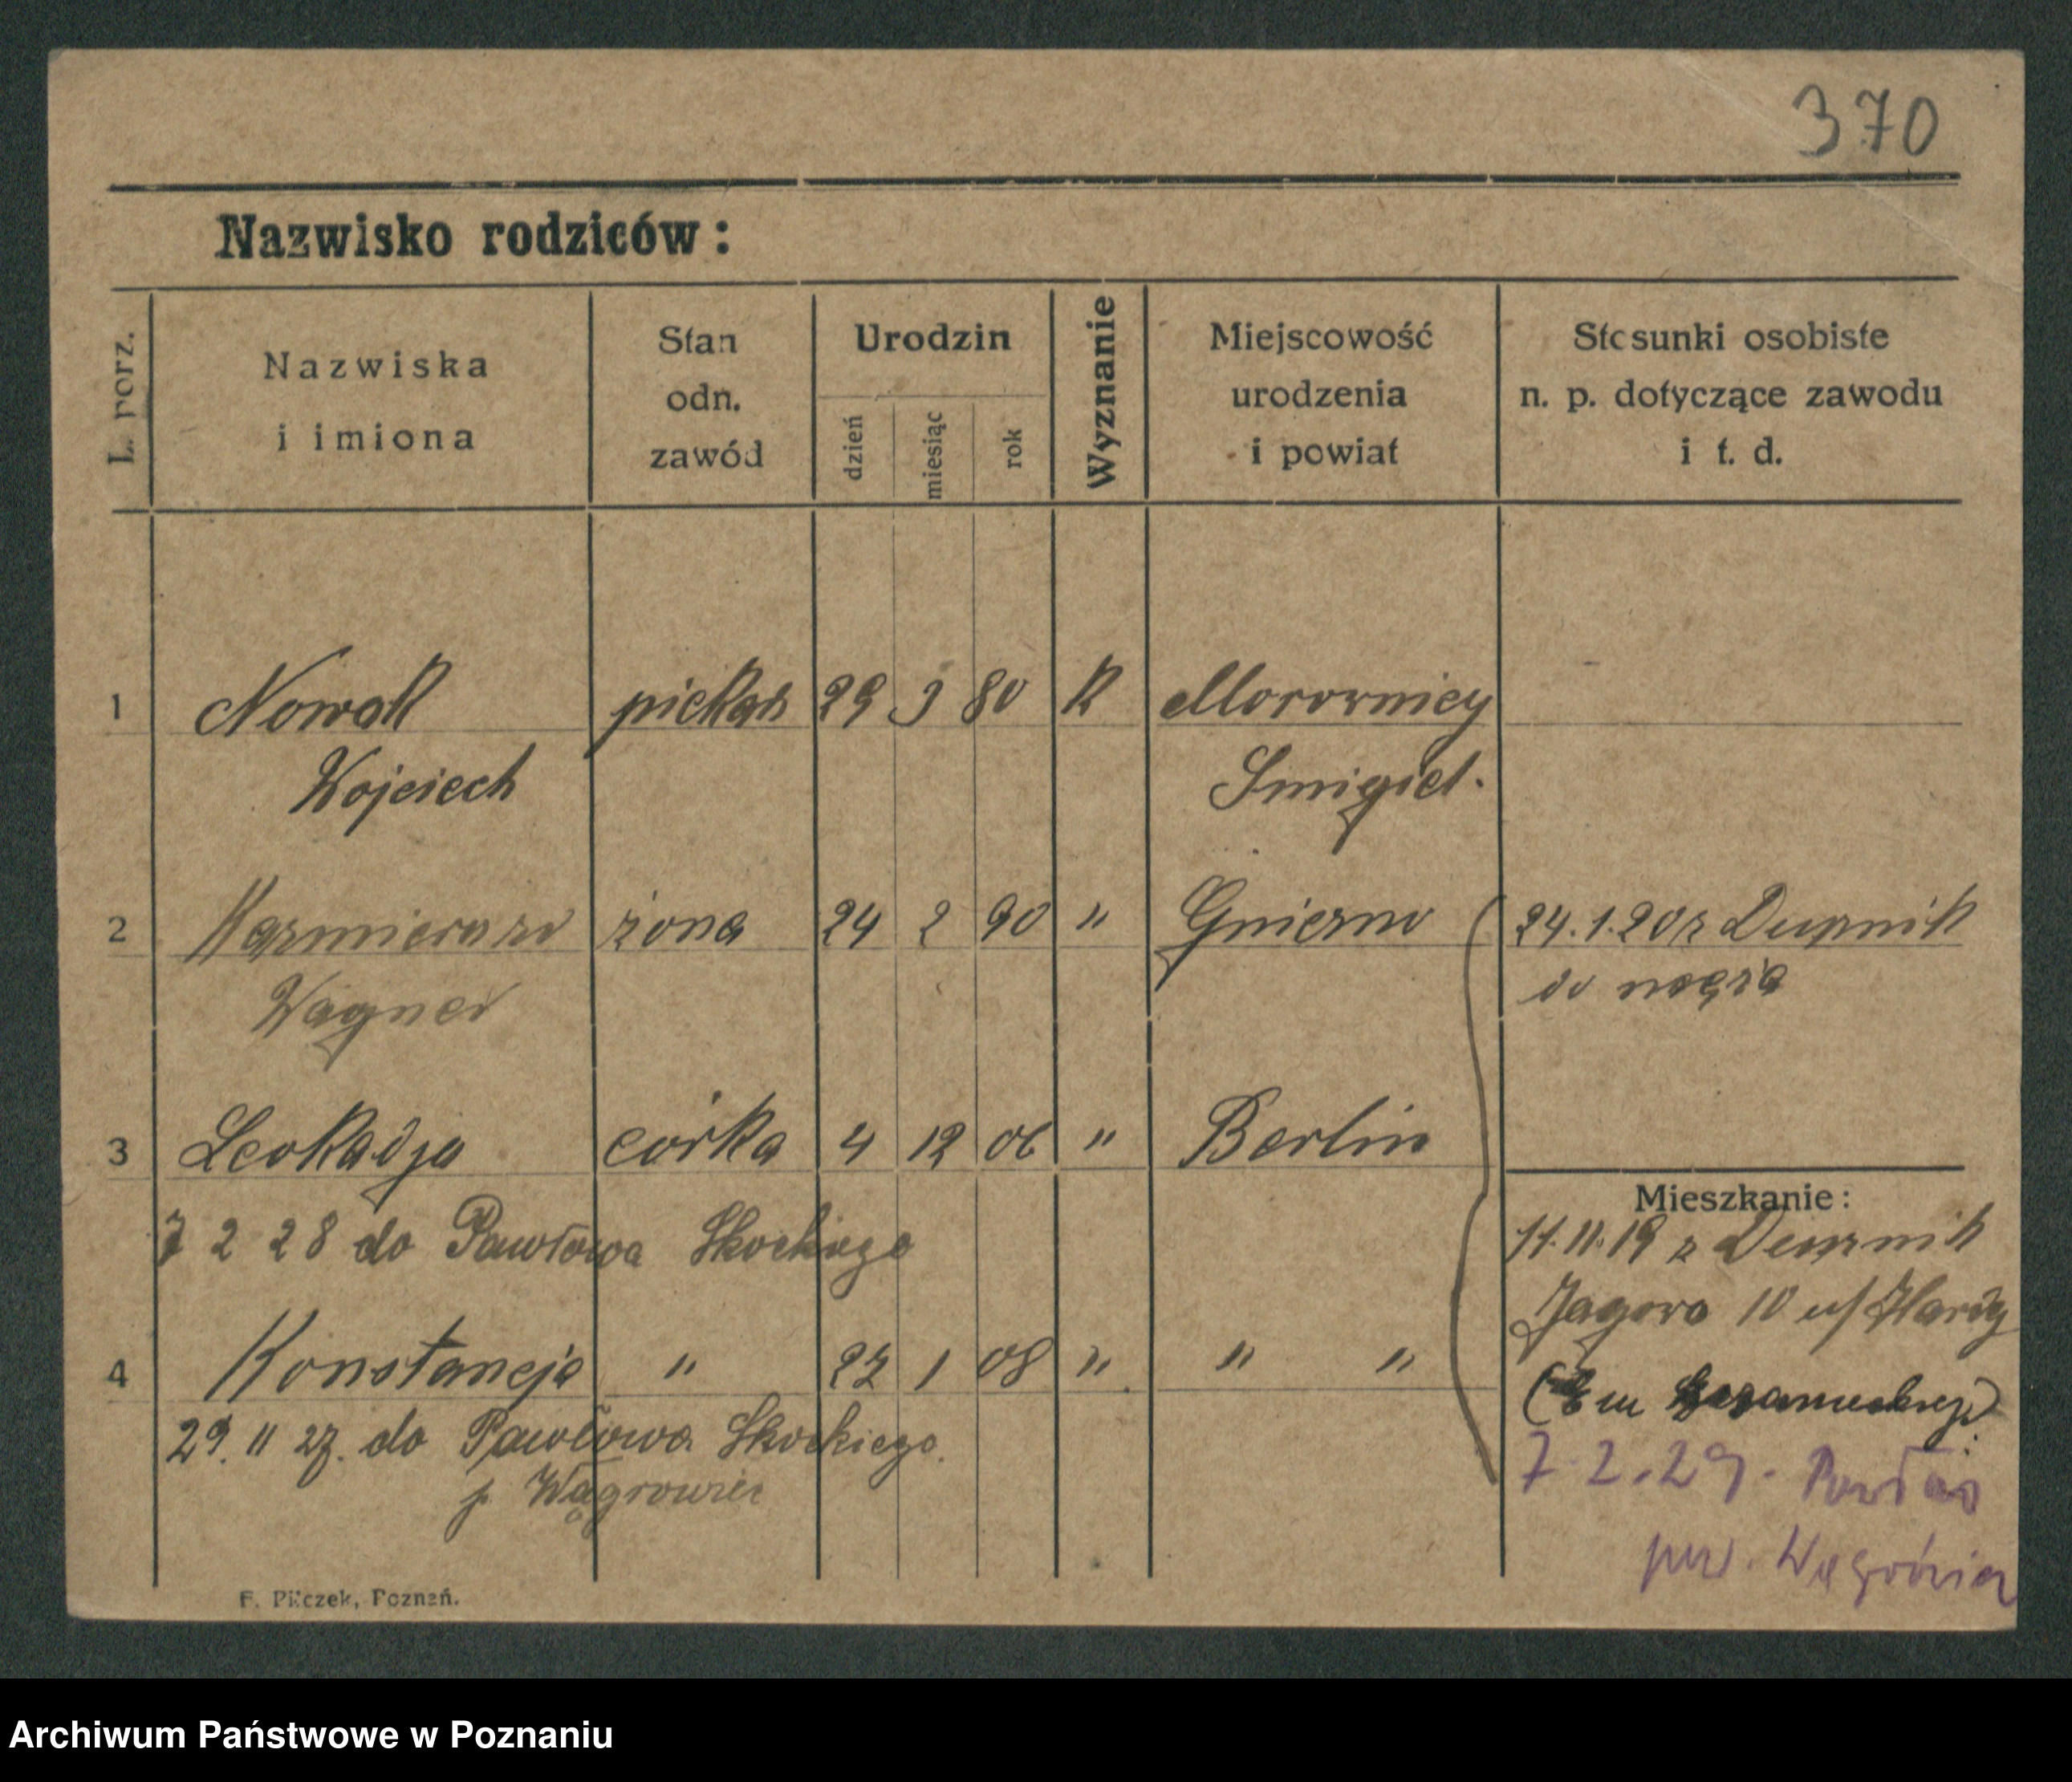 370
Nazwisko rodziców:
L. porz.
Nazwiska
i imiona
Stan
odn.
zawód
Urodzin
dzień
miesiąc
rok
Wyznanie
Miejscowość
urodzenia
i powiat
Stosunki osobiste
n. p. dotyczące zawodu
i t. d.
1 Nowak piekarz 29 3 80 K Morownicy
Wojciech Smigiel.
2 żona 24 2 90 " Gniezno 24.1.20 z
Wagner do męża
3 Leokadja córka 4 12 06 " Berlin
Mieszkanie:
7 2 28 do Pawłowa Skockiego 11.11.19 z
10
4 Konstancja " 1 08 " " "
29. 11 27. do Pawłowa Skockiego.
p. Wągrowiec
7.2.29.
pow.
F. Pilczek, Poznań.
Archiwum Państwowe w Poznaniu